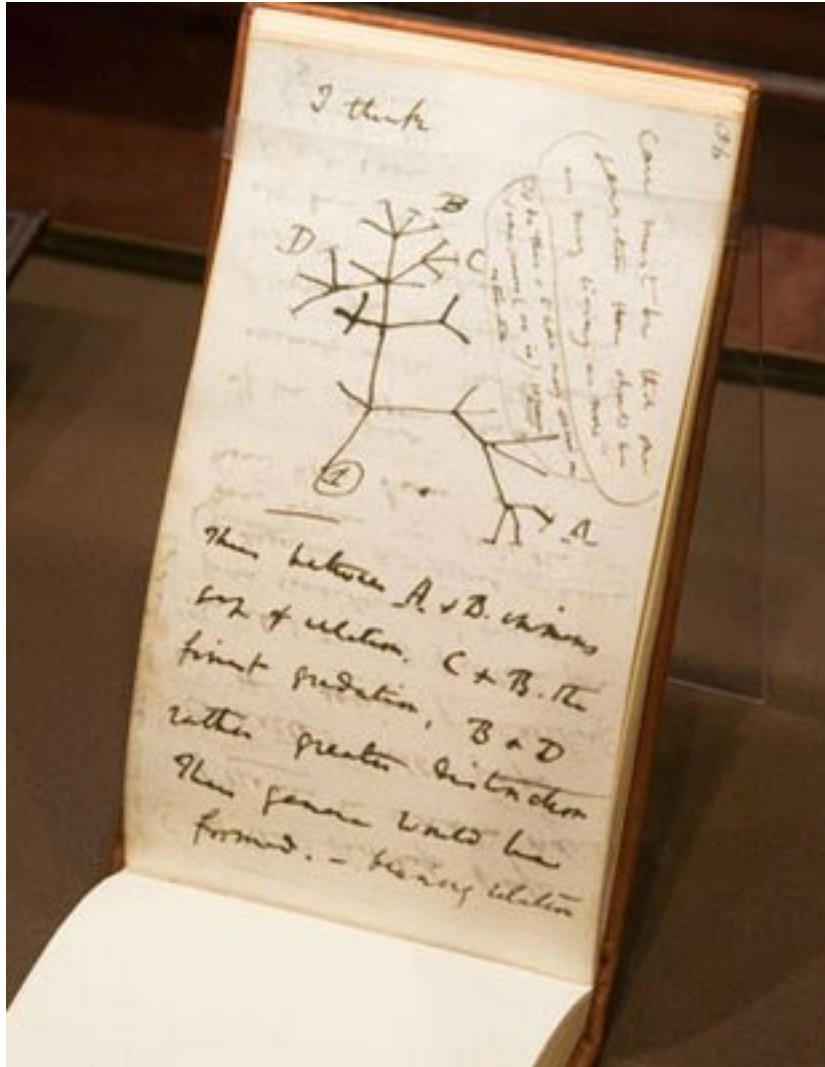 I think
B
D
C
1
A
Case must be that one
generation then should be
as many living as now
To do this & to have many species in
same genus (as is) requires
extinction
36
Thus between A & B. immens
gap of relation. C & B. the
finest gradation, B & D
rather greater distinction
Thus genera would be
formed. — bearing relation